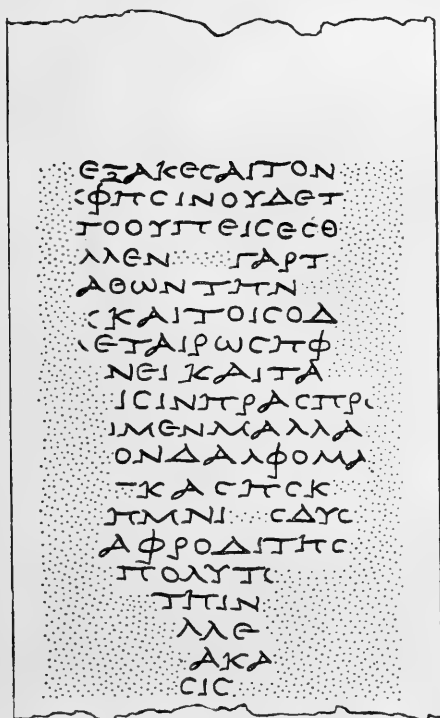 ΕΞΑΚΕϹΑΙΤΟΝ
ϹΦΗϹΙΝΟΥΔΕΤ
ΤΟΟΥΠΕΙϹΕϹΘ
ΛΛΕΝ ΓΑΡΤ
ΑΘΩΝΤΗΝ
ϹΚΑΙΤΟΙϹΟΔ
ΕΤΑΙΡΩϹΗΦ
ΝΕΙΚΑΙΤΑ
ΙϹΙΝΗΡΑϹΗΡΙ
ΙΜΕΝΜΑΛΛΑ
ΟΝΔΑΛΦΟΜΑ
ΚΑϹΗϹΚ
ΗΜΝΙ ϹΔΥϹ
ΑΦΡΟΔΙΤΗϹ
ΠΟΛΥΤΙ
ΤΗΙΝ
ΛΛΕ
ΑΚΑ
ϹΙϹ